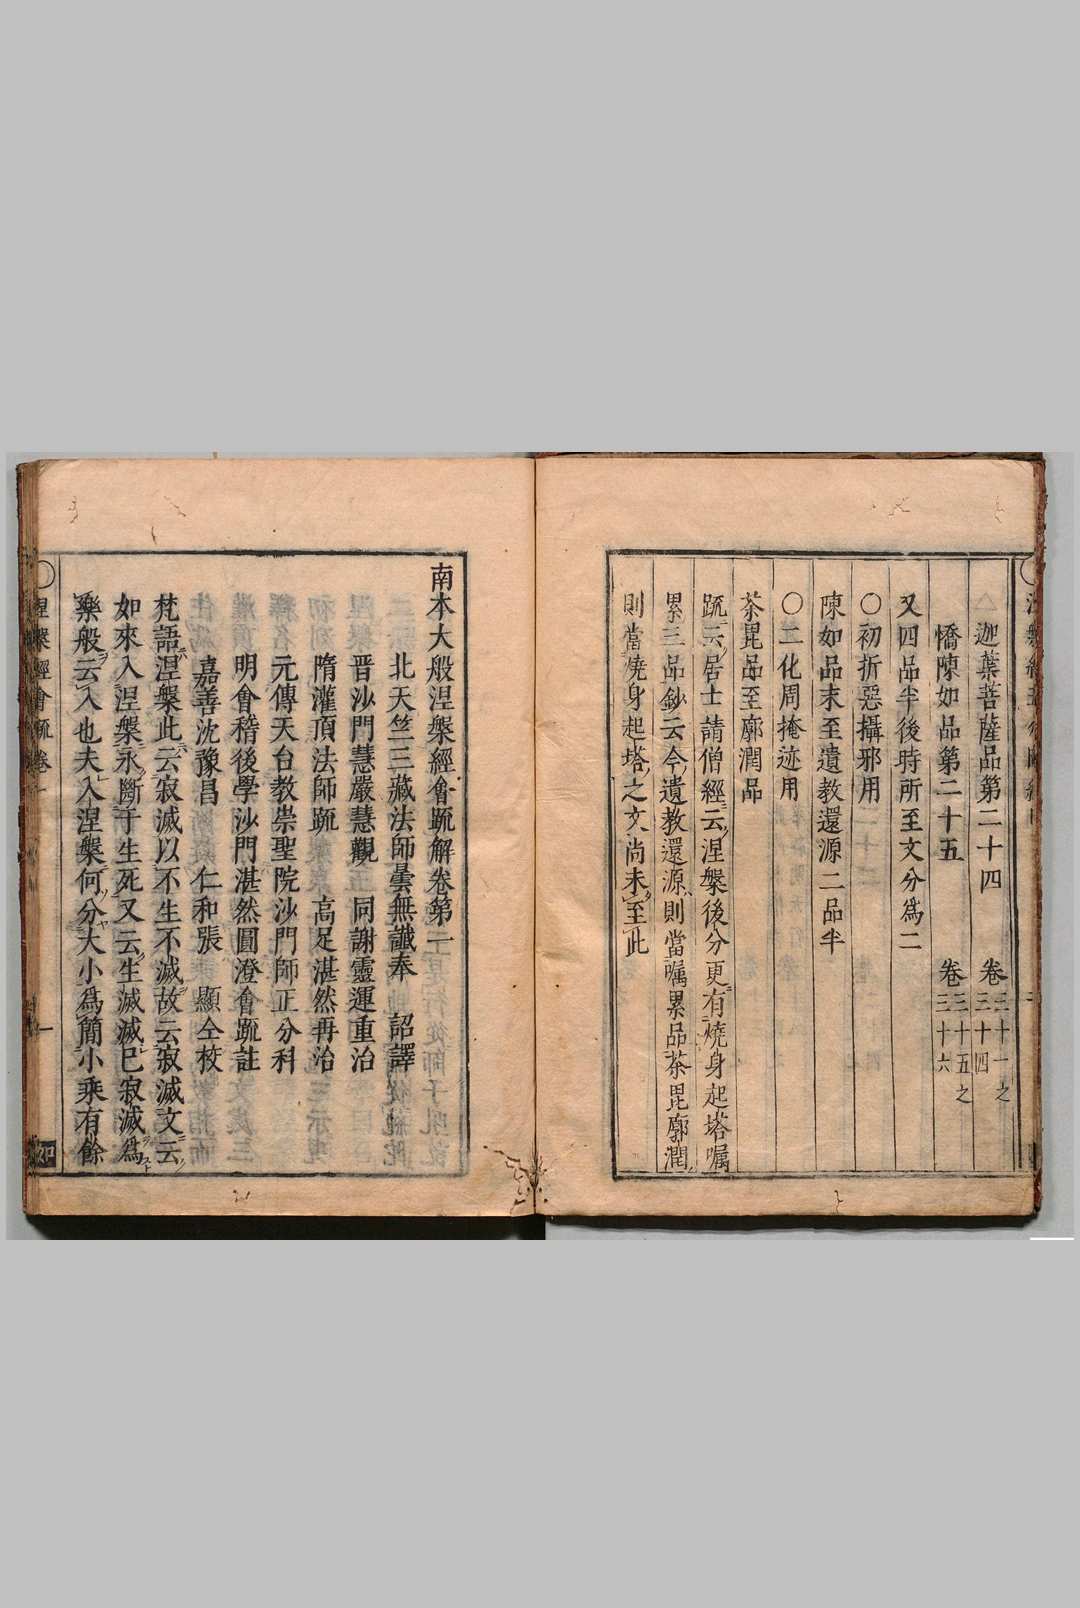 △迦葉菩薩品第二十四 卷三十一之三十四
憍陳如品第二十五 卷三十五之三十六
又四品半後時所至文分爲二
○初折惡攝邪用
陳如品末至遺教還源二品半
○二化周掩迹用
茶毘品至廓潤品
䟽云居士請僧經云涅槃後分更有燒身起塔囑
累三品鈔云今遺教還源則當囑累品茶毘廓潤
則當燒身起塔之文尚未至此
南本大般涅槃經會䟽解卷第一
北天竺三藏法師曇無讖奉 詔譯
晉沙門慧嚴慧觀 同謝靈運重治
隋灌頂法師䟽 高足湛然再治
元傳天台教崇聖院沙門師正分科
明會稽後學沙門湛然圓澄會䟽註
嘉善沈豫昌 仁和張 顯仝校
梵語涅槃此云寂滅以不生不滅故云寂滅文云
如來入涅槃永斷于生死又云生滅滅已寂滅爲
樂般云入也夫入涅槃何分大小爲簡小乘有餘
涅槃經會䟽卷一 一